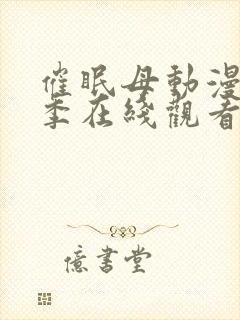 催眠母動漫
季在綫觀看
億書堂